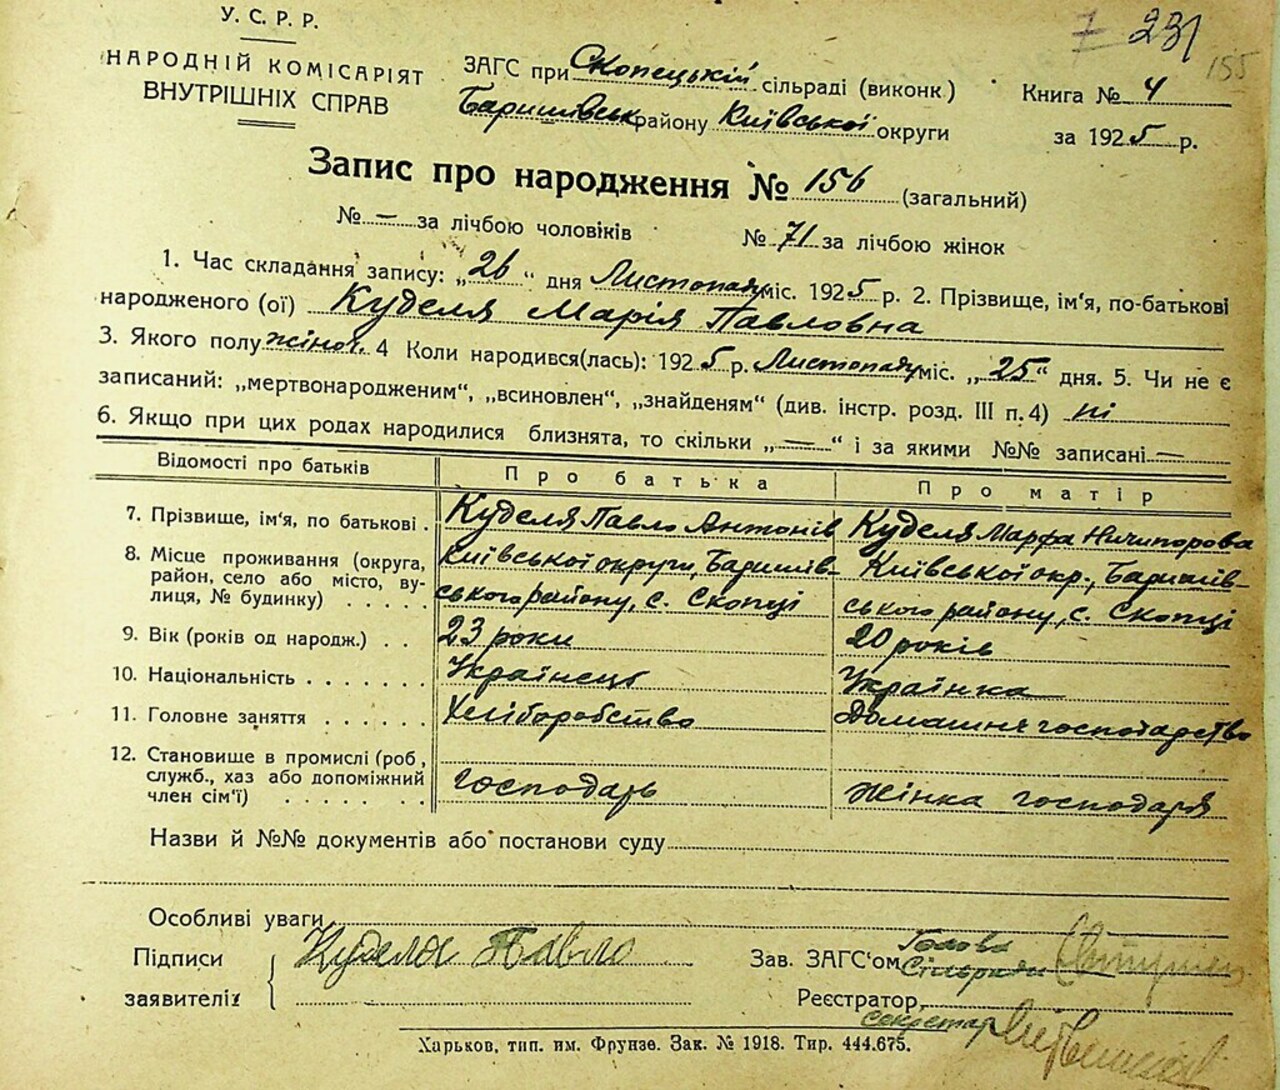 У. С. Р. Р.
7 231
155
НАРОДНІЙ КОМІСАРІЯТ
ВНУТРІШНІХ СПРАВ
ЗАГС при Скопецькій сільраді (виконк.)
Баришівськ району Київської округи
Книга № 4
за 1925 р.
Запис про народження № 156 (загальний)
№ — за лічбою чоловіків № 71 за лічбою жінок
1. Час складання запису: „26“ дня Листопаду міс. 1925 р. 2. Прізвище, ім'я, по-батькові
народженого (ої) Куделя Марія Павловна
3. Якого полу жіноч. 4 Коли народився(лась): 1925 р. Листопаду міс. „25“ дня. 5. Чи не є
записаний: „мертвонародженим“, „всиновлен“, „знайденям“ (див. інстр. розд. III п. 4) ні
6. Якщо при цих родах народилися близнята, то скільки „—“ і за якими №№ записані —
Відомості про батьків Про батька Про матір
7. Прізвище, ім'я, по батькові . Куделя Павло Антонів Куделя Марфа Ничипорова
8. Місце проживання (округа, Київської округи, Баришів- Київської окр., Баришів-
район, село або місто, ву-
лиця, № будинку) . . . . . ського району, с. Скопці ського району, с. Скопці
9. Вік (років од народж.) . . 23 роки 20 років
10. Національність . . . . . . . Українець Українка
11. Головне заняття . . . . . . Хліборобство Домашнє господарство
12. Становище в промислі (роб,
служб., хаз або допоміжний
член сім'ї) . . . . . . господарь жінка господаря
Назви й №№ документів або постанови суду
Особливі уваги
Підписи
заявителіх
Куделя Павло
Зав. ЗАГС'ом Голова
Сільради
Реєстратор
секретар
Харьков, тип. им. Фрунзе. Зак. № 1918. Тир. 444.675.